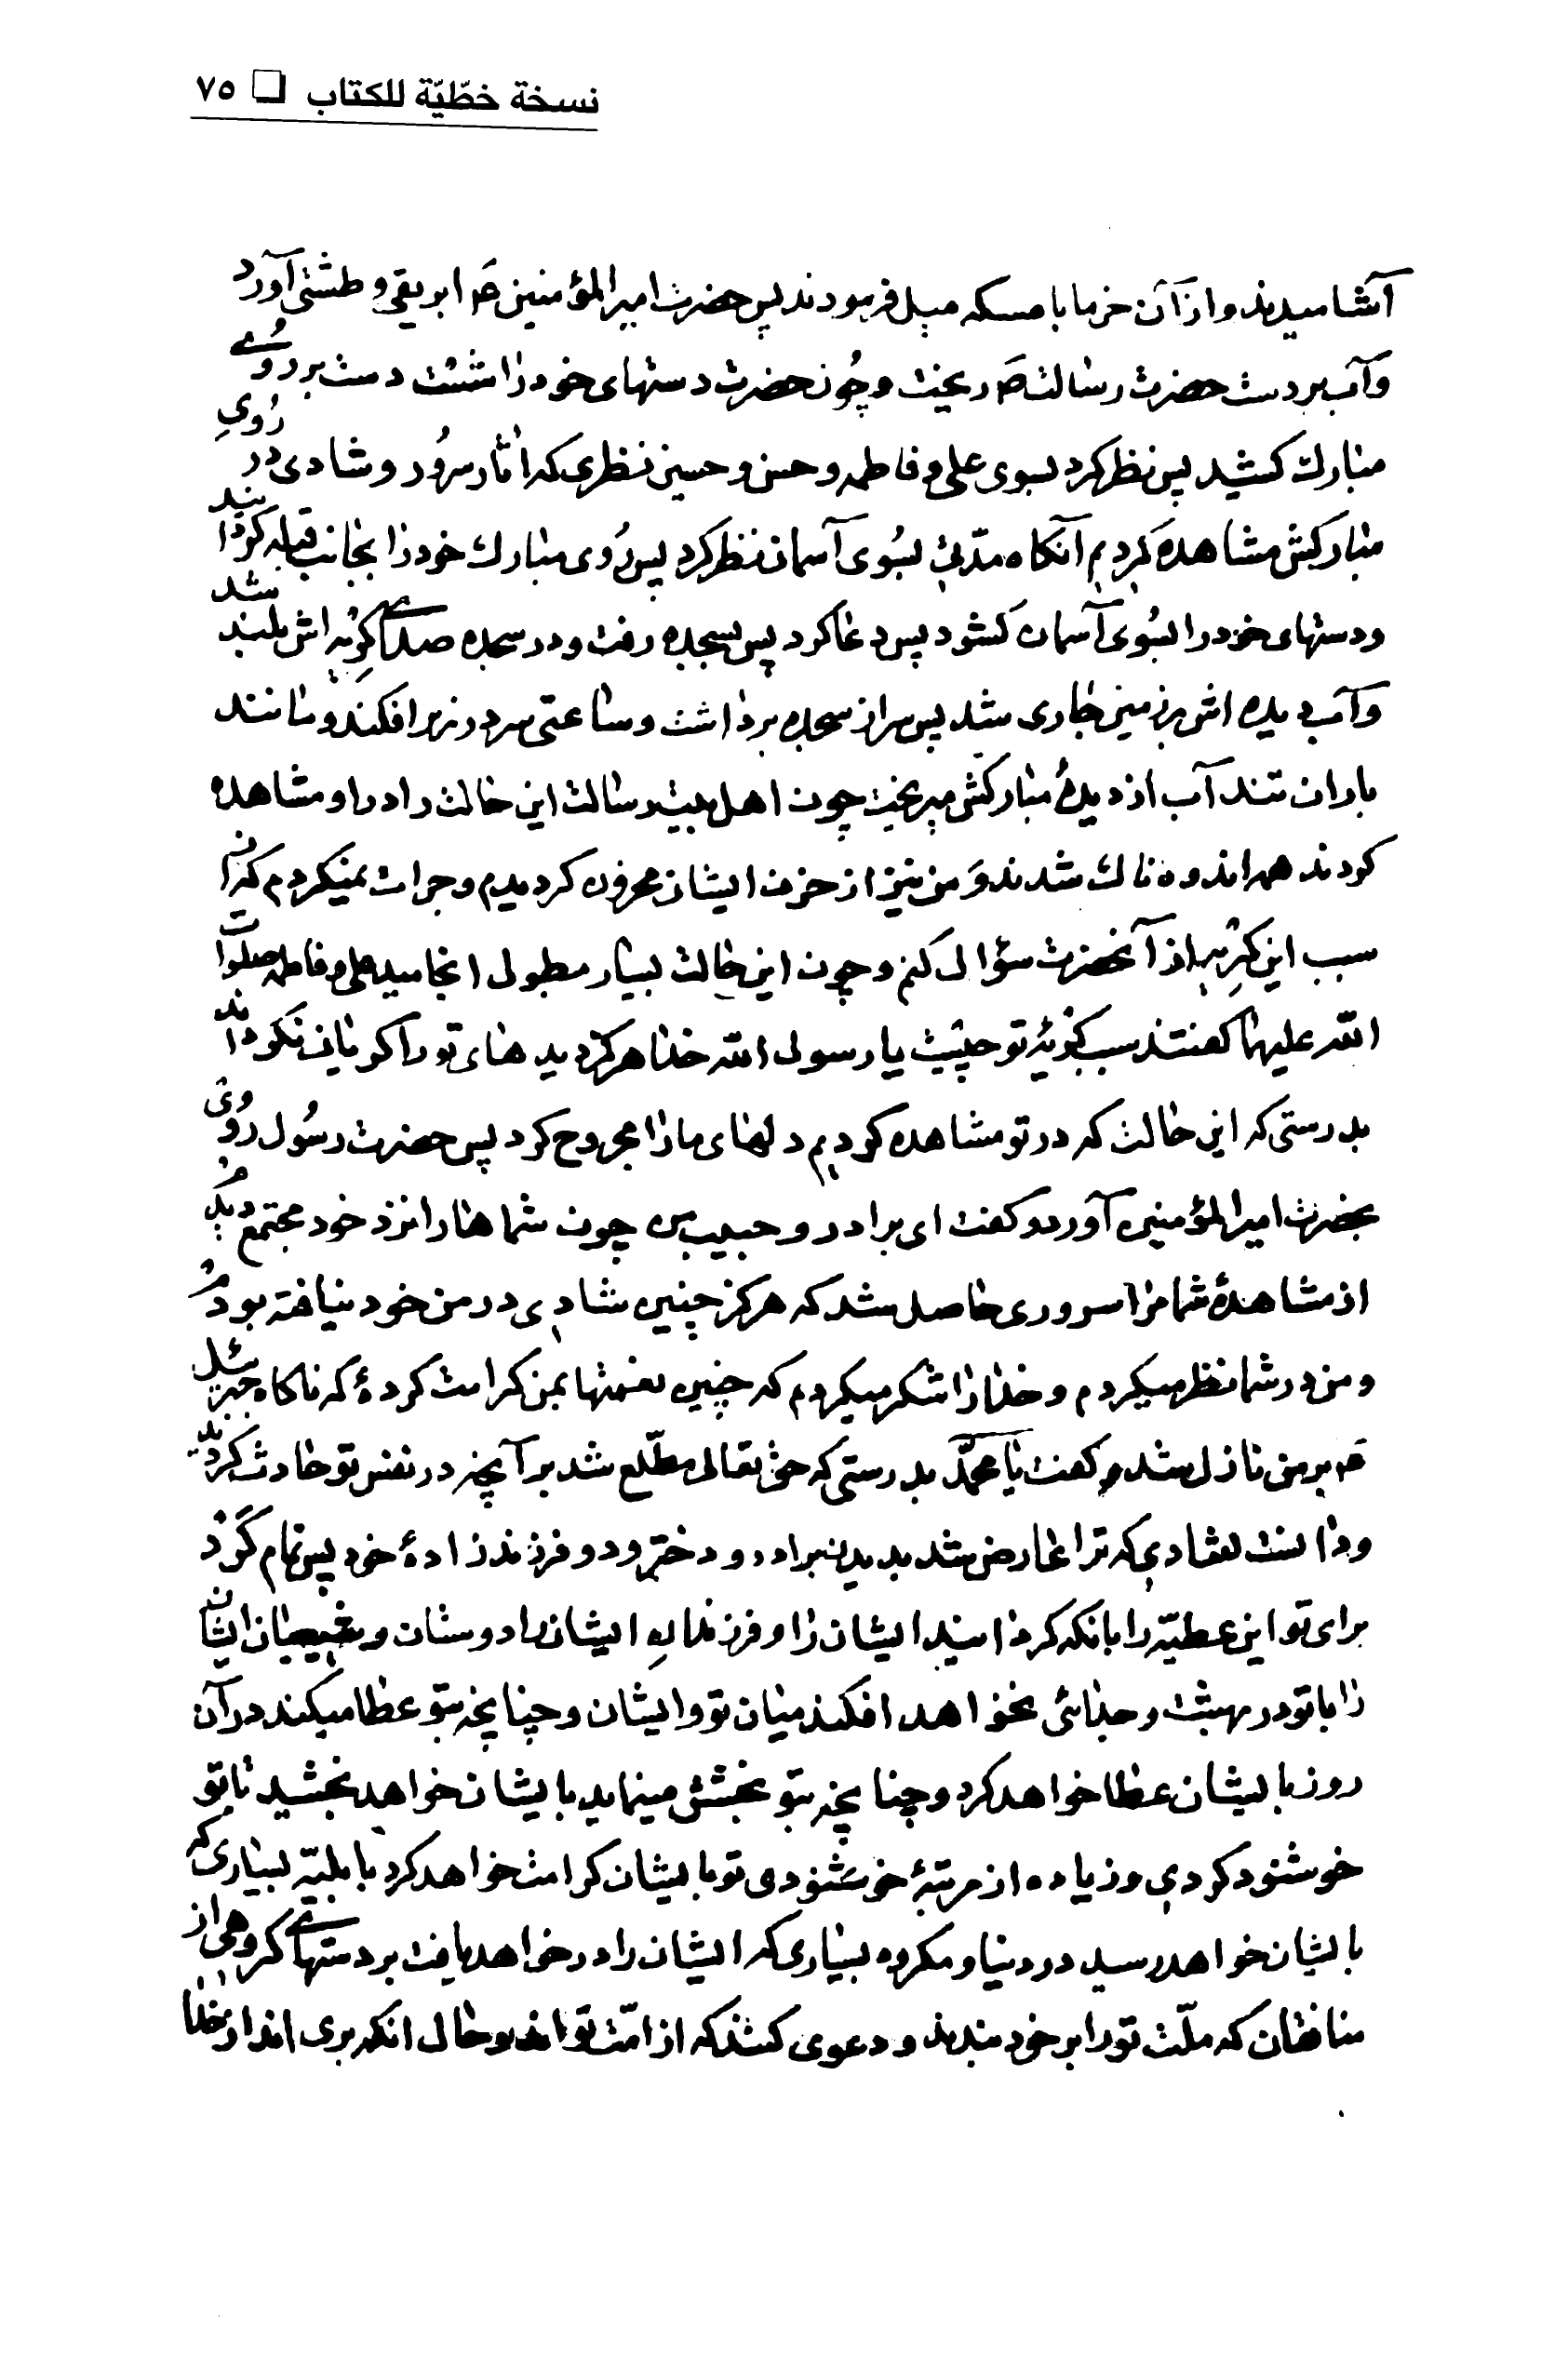 نسخة خطّيّة للكتاب □ ٧٥
آشامیدند و از آن خرما با مسکه میل فرمودند پس حضرت امیرالمؤمنین ع ابریقی و طشتی آورد
و آب بر دست حضرت رسالت ص ریخت و چون حضرت دستهای خود را شست دست بر روی
مبارک کشید پس نظر کرد بسوی علی و فاطمه و حسن و حسین نظری که اثار سرور و شادی در روی
مبارکش مشاهده کردیم آنکاه مدّتی بسوی آسمان نظر کرد پس روی مبارک خود را بجانب قبله کردانید
و دستهای خود را بسوی آسمان کشود پس دعا کرد پس بسجده رفت و در سجده صدای کریه اش بلند شد
و آب دیده اش بر زمین جاری شد پس سر از سجده برداشت و ساعتی سر در زیر افکند و مانند
باران تند آب از دیدۀ مبارکش میریخت چون اهل بیت رسالت این حالت را در او مشاهده
کردند همه اندوه ناک شدند و من نیز از حزن ایشان محزون کردیدم و جرات نمیکردم که از ان
سبب این کریه از آنحضرت سؤال کنم و چون این حالت بسیار مطول انجامید علی و فاطمه صلوات
الله علیهما کفتند سبب کریۀ تو چیست یا رسول الله خدا هرکز دیدهای تو را کریان نکرداند
بدرستی که این حالت که در تو مشاهده کردیم دلهای ما را مجروح کرد پس حضرت رسول روی
بحضرت امیرالمؤمنین آورد و کفت ای برادر و حبیب من چون شماها را نزد خود مجتمع دیدم
از مشاهدۀ شما مرا سروری حاصل شد که هرکز چنین شادی در من خود نیافته بودم
و من در شما نظر میکردم و خدا را شکر میکردم که چنین نعمتها بمن کرامت کردۀ که ناکاه جبرئیل
ع بر من نازل شد و کفت یا محمّد بدرستی که حق تعالی مطّلع شد بر آنچه در نفس تو حادث کردید
و دانست شادی که ترا عارض شد بدیدن برادر و دختر و دو فرزند زادۀ خود پس تمام کرد
برای تو این عطیّه را بانکه کردانید ایشان را و فرزندان ایشان را و دوستان و شیعیان ایشان
را با تو در بهشت و جدائی نخواهد افکند میان تو و ایشان و چنانچه بتو عطا میکند در آن
روز بایشان عطا خواهد کرد و چنانچه بتو بخشش مینماید بایشان خواهد بخشید تا تو
خوشنود کردی و زیاده از مرتبۀ خوشنودی تو بایشان کرامت خواهد کرد با بلیّه بسیاری که
بایشان خواهد رسید در دنیا و مکروه بسیاری که ایشان را در خواهد یافت بر دستهای کروهی از
منافقان که ملّت تو را بر خود بندند و دعوی کنند که از امّت تواند و حال انکه بری اند از خدا